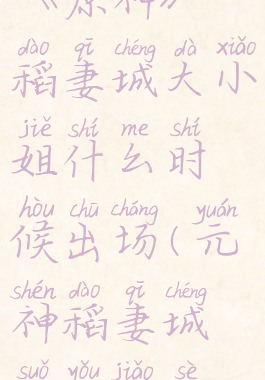 《原神》
dào qī chéng dà xiǎo
稻妻城大小
jiě shí me shí
姐什么时
hòu chū cháng yuán
候出场(元
shén dào qī chéng
神稻妻城
suǒ yǒu jiǎo sè